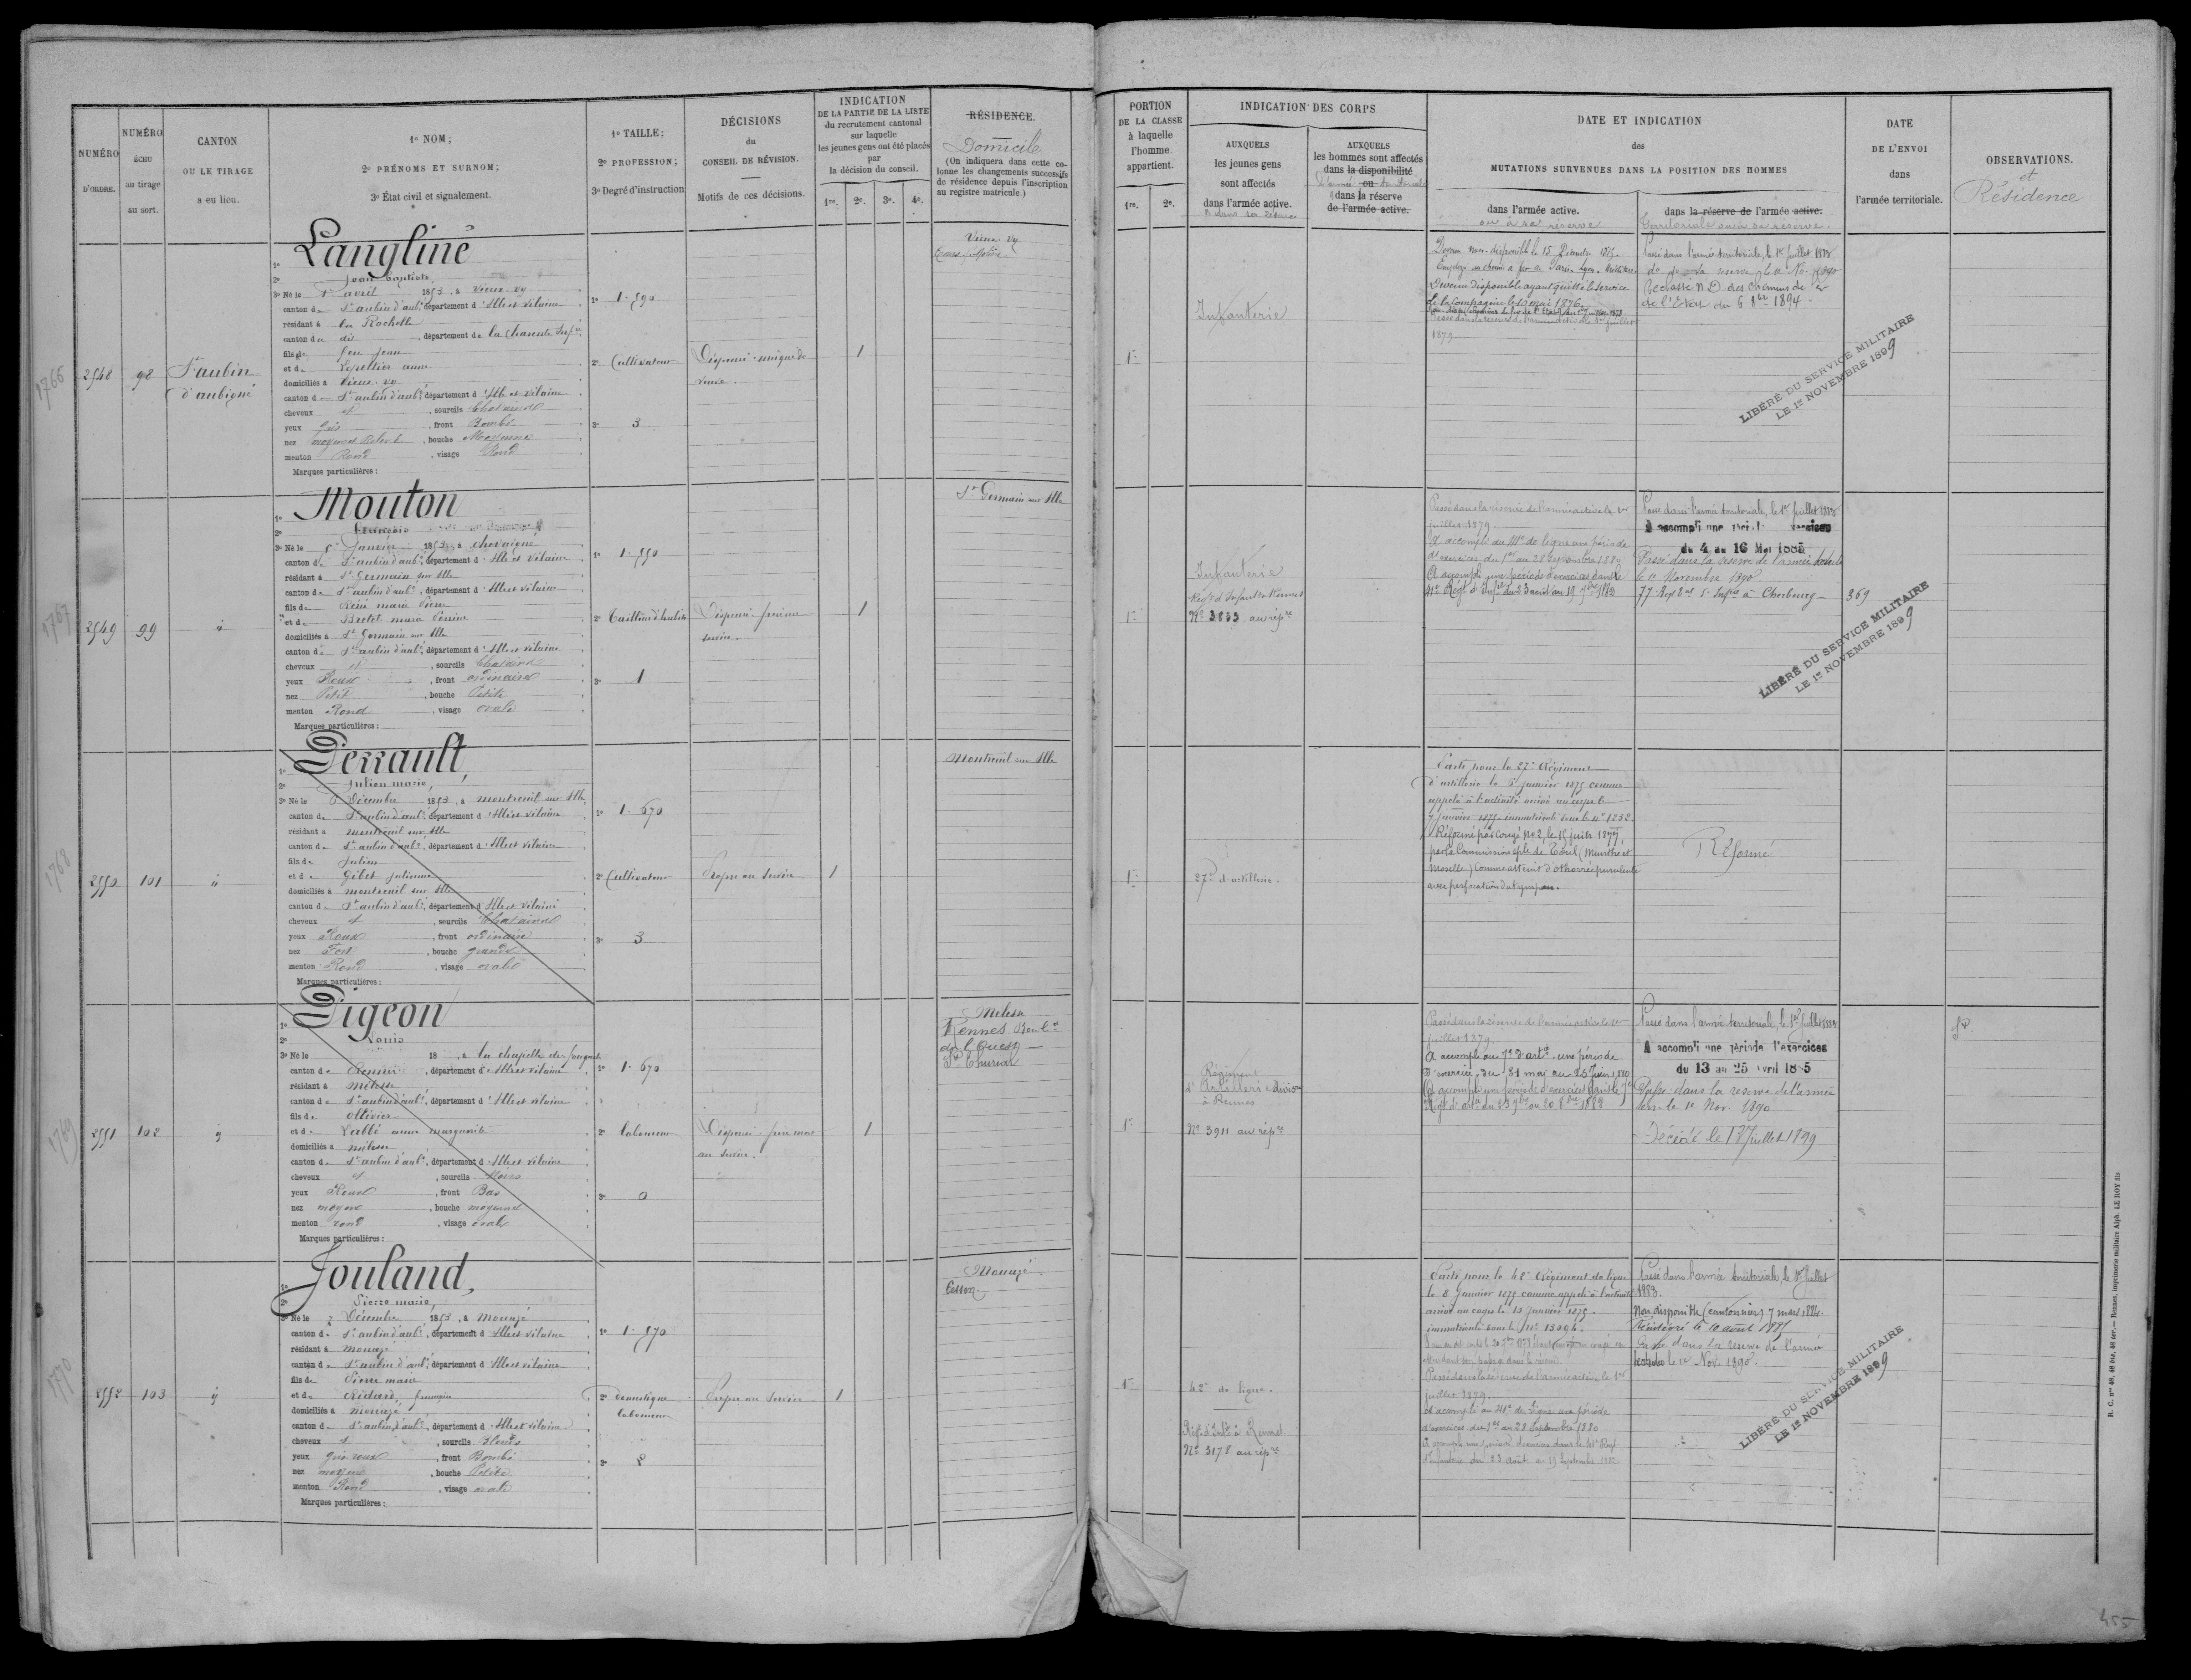 NUMÉRO
D'ORDRE.
NUMÉRO
ÉCHU
au tirage
au sort.
CANTON
OU LE TIRAGE
a eu lieu.
1º NOM;
2º PRÉNOMS ET SURNOM;
3º État civil et signalement.
1º TAILLE;
2º PROFESSION;
3º Degré d'instruction
DÉCISIONS
du
CONSEIL DE RÉVISION.
Motifs de ces décisions.
INDICATION
DE LA PARTIE DE LA LISTE
du recrutement cantonal
sur laquelle
les jeunes gens ont été placés
par
la décision du conseil.
1re. 2e. 3e. 4e.
RÉSIDENCE.
Domicile
(On indiquera dans cette co-
lonne les changements successifs
de résidence depuis l'inscription
au registre matricule.)
PORTION
DE LA CLASSE
à laquelle
l'homme
appartient.
1re. 2e.
INDICATION DES CORPS
AUXQUELS
les jeunes gens
sont affectés
dans l'armée active.
AUXQUELS
les hommes sont affectés
dans la disponibilité
ou
dans la réserve
de l'armée active.
DATE ET INDICATION
des
MUTATIONS SURVENUES DANS LA POSITION DES HOMMES
dans l'armée active.
ou à sa réserve
dans la réserve de l'armée active.
territoriale ou à sa réserve.
DATE
DE L'ENVOI
dans
l'armée territoriale.
OBSERVATIONS.
et
Résidence
1766
2548
98
St aubin
d'aubigné
1º Langliné
2º Jean baptiste
3º Né le 1er avril 1853, à Vieux-vy
canton de St aubin d'aubé, département d'Ille et Vilaine
résidant à la Rochelle
canton du dit, département de la Charente Infre
fils de feu Jean
et de Lepeltier anne
domiciliés à Vieux-vy
canton de St aubin d'aubé, département d'Ille et Vilaine
cheveux et, sourcils Chatains
yeux gris, front Bombé
nez moyen et Relevé, bouche Moyenne
menton Rond, visage Rond
Marques particulières:
1º 1.590
2º Cultivateur
3º 3
1
Vieux-vy
1re
Infanterie
Devenu non-disponible le 15 Décembre 1875.
Devenu Disponible ayant quitté le service
de la Compagnie le 10 mai 1876.
Passé dans la réserve de l'armée active le 1er juillet
1879.
Passé dans l'armée territoriale, le 1er juillet 1883
Reclassé N.D des chemins de fer
de l'Etat du 6 8bre 1894.
LIBÉRÉ DU SERVICE MILITAIRE
LE 1er NOVEMBRE 1899
1767
2549
99
1º Mouton
2º François
3º Né le Janvier 1853, à Chevaigné
canton de St aubin d'aubé, département d'Ille et Vilaine
résidant à St Germain sur Ille
canton de St aubin d'aubé, département d'Ille et Vilaine
fils de
et de Bretel marie Perrine
domiciliés à St Germain sur Ille
canton de St aubin d'aubé, département d'Ille et Vilaine
cheveux et, sourcils Chatains
yeux Roux, front ordinaire
nez Petit, bouche Petite
menton Rond, visage ovale
Marques particulières:
1º 1.550
2º Tailleur d'habits
3º 1
1
St Germain sur Ille
1re
Infanterie
Régt d'Infantie Rennes
Nº 3833 au répre
Passé dans la réserve de l'armée active le 1er
juillet 1879.
A accompli au 41e de ligne une période
d'exercices du 1er au 28 septembre 1880
A accompli une période d'exercices dans le
Passé dans l'armée territoriale, le 1er Juillet 1883
A accompli une période d'exercices
du 4 au 16 Mai 1885
Passé dans la réserve de l'armée territle
le 1er Novembre 1890.
369
LIBÉRÉ DU SERVICE MILITAIRE
LE 1er NOVEMBRE 1899
1768
2550
101
1º Perrault,
2º Julien marie,
3º Né le Décembre 1853, à montreuil sur Ille
canton de St aubin d'aubé, département d'Ille et Vilaine
résidant à montreuil sur Ille
canton de St aubin d'aubé, département d'Ille et Vilaine
fils de Julien
et de Gilet Julienne
domiciliés à montreuil sur Ille
canton de St aubin d'aubé, département d'Ille et Vilaine
cheveux et, sourcils Chatains
yeux Roux, front ordinaire
nez Fort, bouche grande
menton Rond, visage ovale
Marques particulières:
1º 1.670
2º Cultivateur
3º 3
Propre au service
1
Montreuil sur Ille
1re
27e d'artillerie.
Parti pour le 27e Régiment
d'artillerie le 6 janvier 1875 comme
appelé à l'activité arrivé au corps le
7 janvier 1875. immatriculé sous le nº 1252
Réformé par congé Nº 2, le 15 juin 1877,
par la Commission sple de Toul (Meurthe et
Moselle) comme atteint d'othorrée purulente
avec perforation du tympan.
Réformé
1769
2551
102
1º Pigeon
2º Louis
3º Né le 18 , à la chapelle des fougeretz
canton de Rennes, département d'Ille et Vilaine
résidant à Melesse
canton de St aubin d'aubé, département d'Ille et Vilaine
fils de Ollivier
et de Labbé anne marguerite
domiciliés à melesse
canton de St aubin d'aubé, département d'Ille et Vilaine
cheveux et, sourcils Noirs
yeux Roux, front Bas
nez moyen, bouche moyenne
menton rond, visage ovale
Marques particulières:
1º 1.670
2º laboureur
3º 0
au service.
1
Melesse
Rennes Boul.d
de l'Ouest
1re
Régiment
d'Artillerie
à Rennes
Nº 3911 au répre
Passé dans la réserve de l'armée active le 1er
juillet 1879.
A accompli au 7e d'artie une période
d'exercice du 31 mai au 25 juin 1880
A accompli une période d'exercices dans le 7e
Régt d'artie du 23 7bre au 20 8bre 1882
Passé dans l'armée territoriale, le 1er Juillet 1883
A accompli une période d'exercices
du 13 au 25 Avril 1885
Passé dans la réserve de l'armée
terr. le 1er Nov. 1890
Décédé le 13 Juillet 1899
1770
2552
103
1º Jouland,
2º Pierre marie,
3º Né le 7 Décembre 1853, à Mouazé
canton de St aubin d'aubé, département d'Ille et Vilaine
résidant à mouazé
canton de St aubin d'aubé, département d'Ille et Vilaine
fils de Pierre marie
et de françoise
domiciliés à mouazé
canton de St aubin d'aubé, département d'Ille et Vilaine
cheveux et, sourcils Blonds
yeux gris roux, front Bombé
nez moyen, bouche Petite
menton Rond, visage ovale
Marques particulières:
1º 1.570
2º domestique
laboureur
3º
Propre au service
1
Mouazé.
Cesson
1re
42e de ligne.
Régt d'Infie à Rennes
Nº 3178 au répre
Parti pour le 42e Régiment de ligne
le 8 Janvier 1875 comme appelé à l'activité
arrivé au corps le 13 Janvier 1875.
immatriculé sous le Nº 13096.
Passé dans la réserve de l'armée active le 1er
juillet 1879.
A accompli au 41e de ligne une période
d'exercices du 1er au 28 Septembre 1880
A accompli une période d'exercices dans le 41e Régt
d'Infanterie du 23 Août au 19 Septembre 1882
Passé dans l'armée territoriale, le 1er Juillet
1883.
Non disponible (cantonnier) 7 mars 1884.
Réintégré le 10 août 1885
Passé dans la réserve de l'armée
territle le 1er Nov. 1890.
LIBÉRÉ DU SERVICE MILITAIRE
LE 1er NOVEMBRE 1899
R. C. Nos 48, 48 bis, 48 ter.— Rennes, imprimerie militaire Alph. LE ROY fils
455